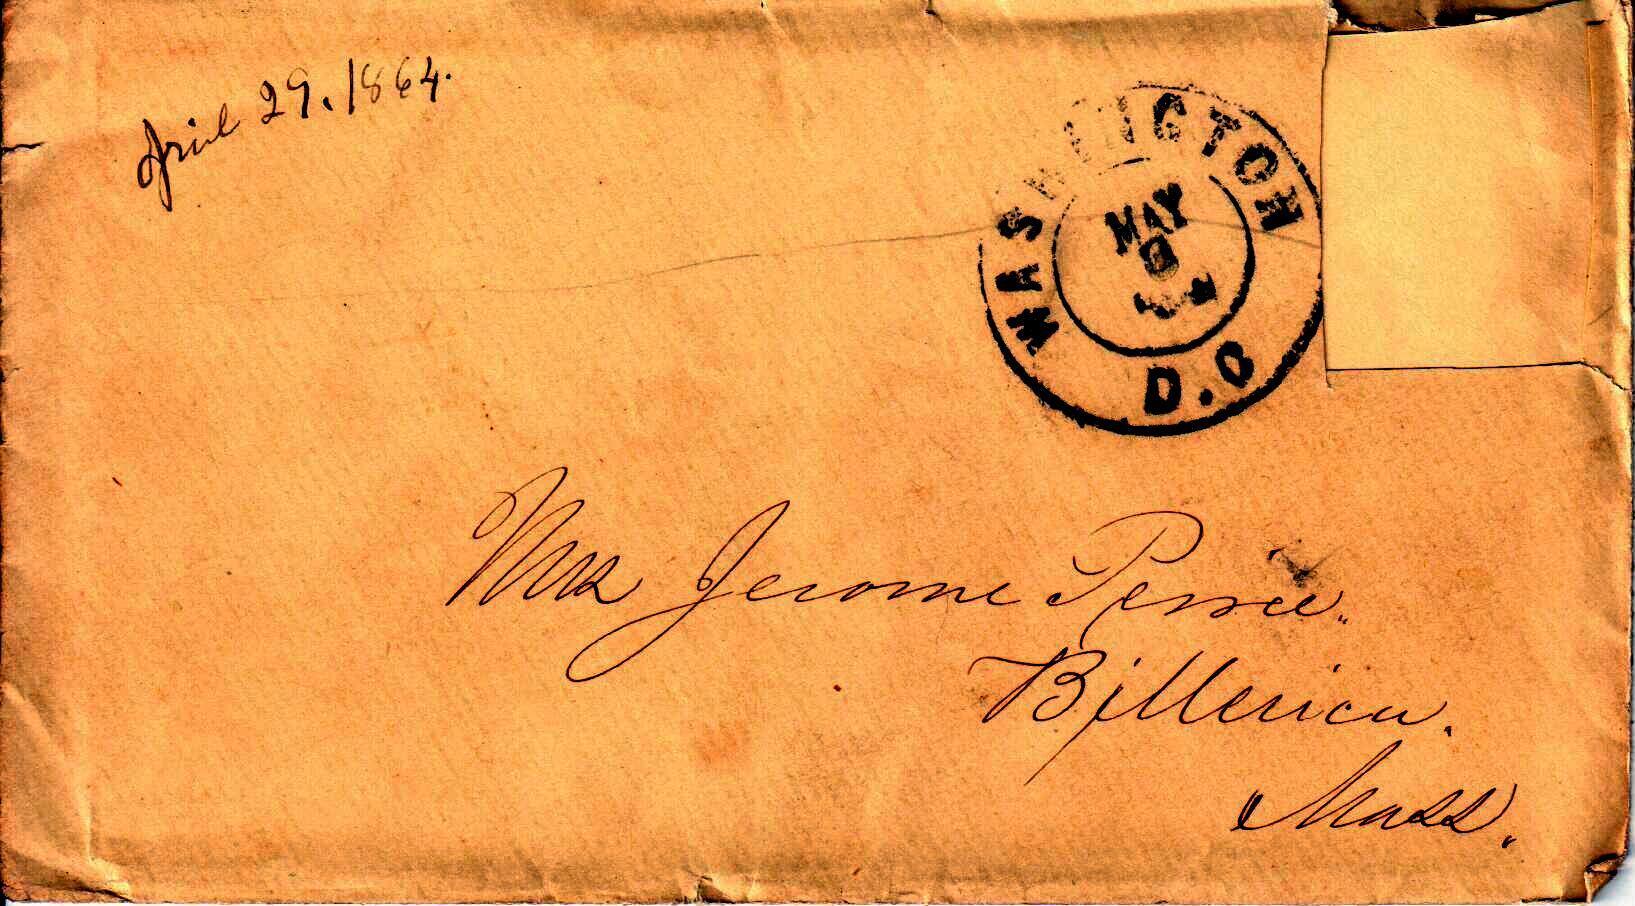 April 29. 1864.
WASHINGTON
MAY
D.C
Mrs Jerome Peirce.
Billerica.
Mass.